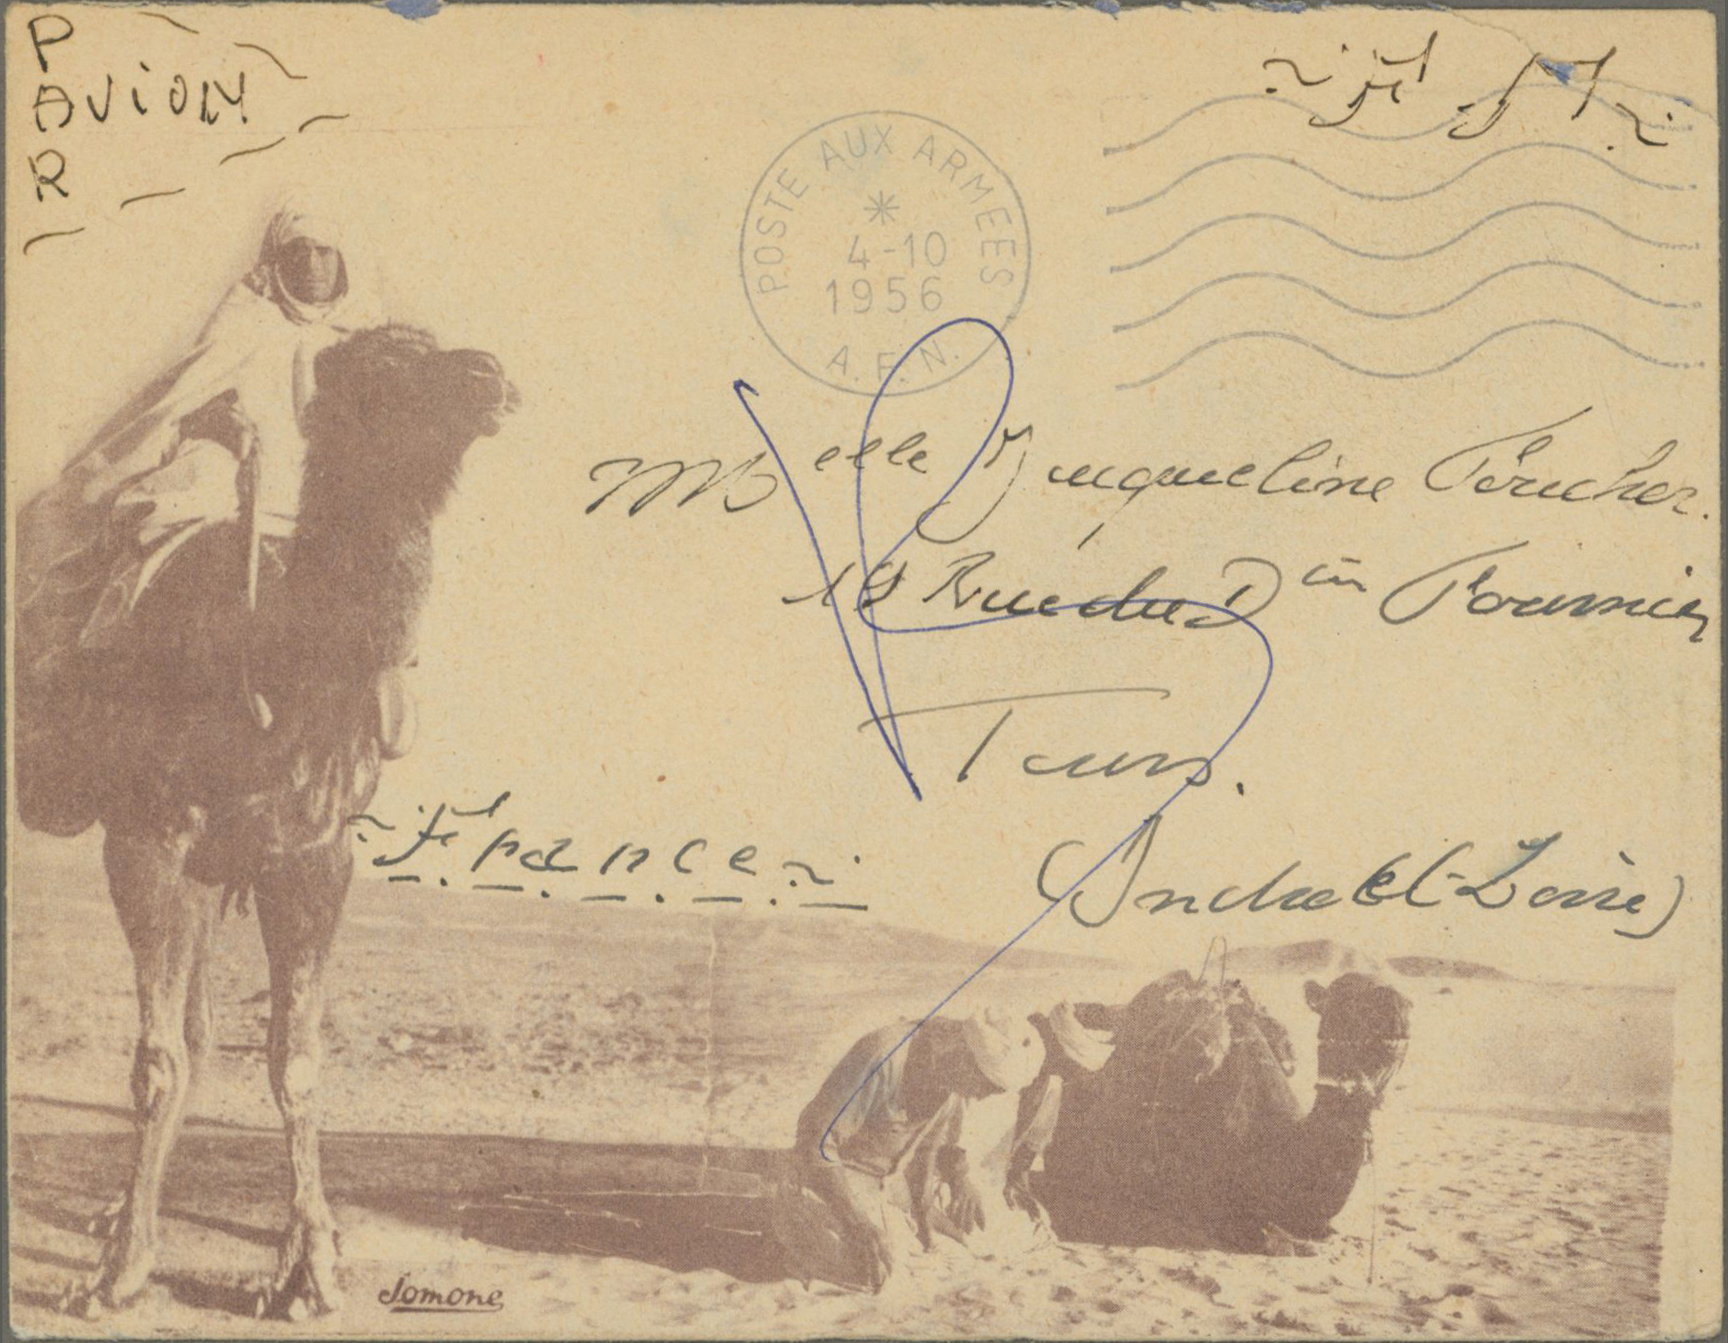 PAR
AVION
F. M.
POSTE AUX ARMEES
4-10
1956
A.F.N.
Melle Jacqueline Foucher.
19 Rue du Din Fournier
Tours.
(Indre et-Loire)
France
Jomone